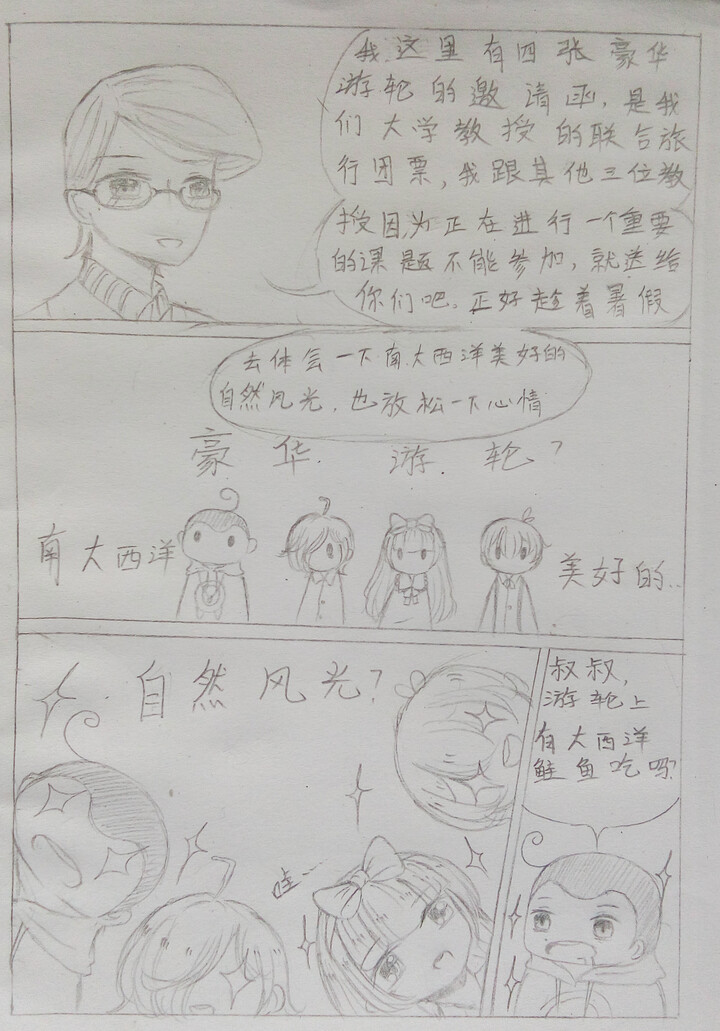 我这里有四张豪华
游轮的邀请函，是我
们大学教授的联合旅
行团票，我跟其他三位教
授因为正在进行一个重要
的课题不能参加，就送给
你们吧。正好趁着暑假
去体会一下南大西洋美好的
自然风光，也放松一下心情
豪华游轮？
南大西洋
美好的..
自然风光？
哇…
叔叔，
游轮上
有大西洋
鲑鱼吃吗？